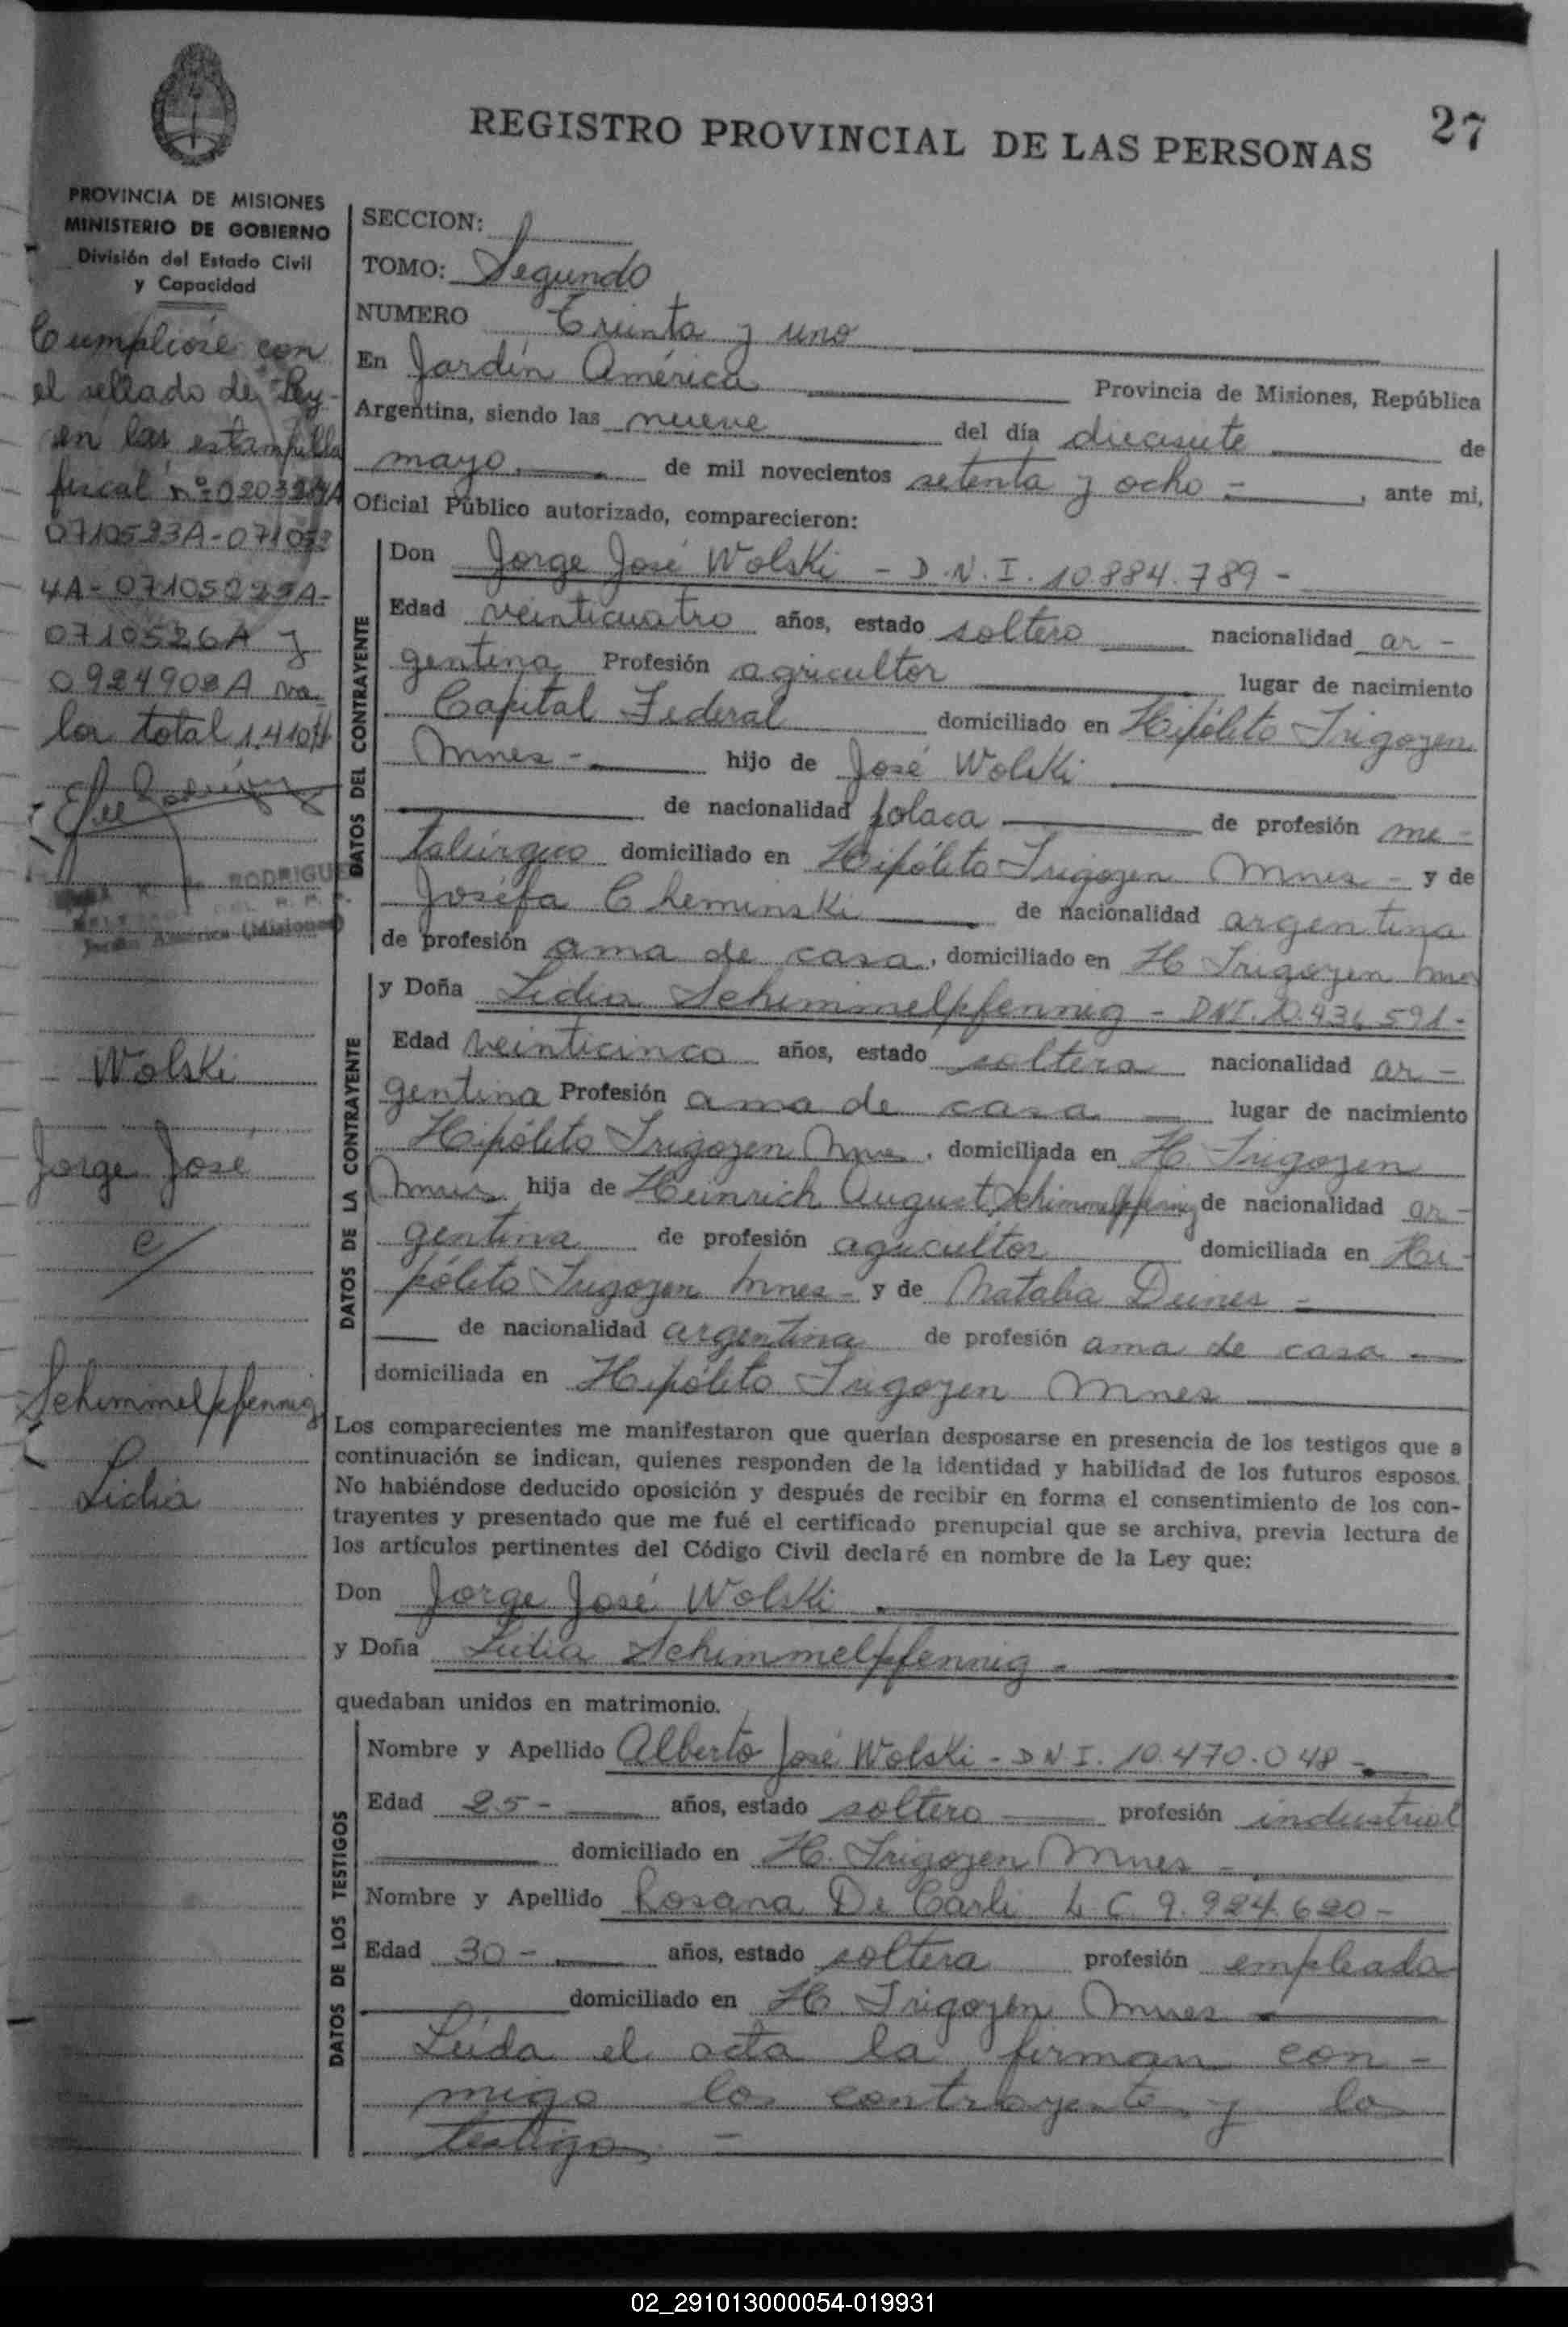 27
REGISTRO PROVINCIAL DE LAS PERSONAS
PROVINCIA DE MISIONES
MINISTERIO DE GOBIERNO
División del Estado Civil
y Capacidad
Cumpliose con
el sellado de Ley
en las estampilla
fiscal nº
0710523A-07105
4A-
0710526A y
0924902A va
lor total 1.410
RODRIGUE
DEL R. P. P.
Jardín América (Misiones)
Wolski
Jorge José
c/
Schimmelpfennig
Lidia
SECCION:
TOMO: Segundo
NUMERO Treinta y uno
En Jardín América Provincia de Misiones, República
Argentina, siendo las nueve del día diecisiete de
mayo de mil novecientos setenta y ocho - , ante mi,
Oficial Público autorizado, comparecieron:
DATOS DEL CONTRAYENTE
Don Jorge José Wolski - D.N.I. 10.884.789 -
Edad veinticuatro años, estado soltero nacionalidad ar-
gentina Profesión agricultor lugar de nacimiento
Capital Federal domiciliado en Hipólito Irigoyen
Mnes - hijo de José Wolski
de nacionalidad polaca de profesión me-
talúrgico domiciliado en Hipólito Irigoyen Mnes - y de
Josefa Cheminski de nacionalidad argentina
de profesión ama de casa, domiciliado en H Irigoyen Mnes
DATOS DE LA CONTRAYENTE
y Doña Lidia Schimmelpfennig - DNI. 10.436.591-
Edad veinticinco años, estado soltera nacionalidad ar-
gentina Profesión ama de casa lugar de nacimiento
Hipólito Irigoyen Mnes, domiciliada en H. Irigoyen
Mnes hija de Heinrich August Schimmelpfennig de nacionalidad ar-
gentina de profesión agricultor domiciliada en Hi-
pólito Irigoyen Mnes - y de Natalia Deines -
de nacionalidad argentina de profesión ama de casa
domiciliada en Hipólito Irigoyen Mnes
Los comparecientes me manifestaron que querían desposarse en presencia de los testigos que a
continuación se indican, quienes responden de la identidad y habilidad de los futuros esposos.
No habiéndose deducido oposición y después de recibir en forma el consentimiento de los con-
trayentes y presentado que me fué el certificado prenupcial que se archiva, previa lectura de
los artículos pertinentes del Código Civil declaré en nombre de la Ley que:
Don Jorge José Wolski
y Doña Lidia Schimmelpfennig -
quedaban unidos en matrimonio.
DATOS DE LOS TESTIGOS
Nombre y Apellido Alberto José Wolski - DNI. 10.470.048 -
Edad 25- años, estado soltero profesión industrial
domiciliado en H. Irigoyen Mnes -
Nombre y Apellido Rosana De Carli L C 9.924.620 -
Edad 30- años, estado soltera profesión empleada
domiciliado en H. Irigoyen Mnes
Leida el acta la firman con-
migo los contrayentes y los
testigos -
02_291013000054-019931